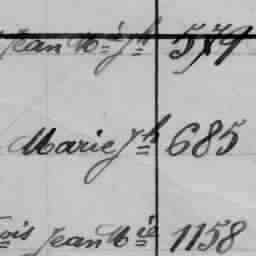 Jean Mie Jh 579
Marie Jh 685
ois Jean Mie 1158